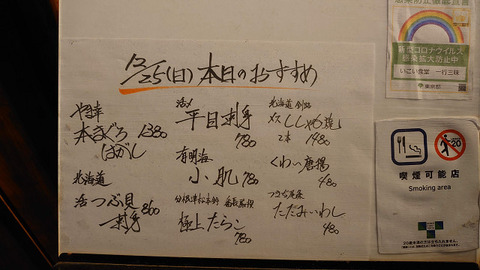 12/25(日)本日のおすすめ
本まぐろ 1380
はがし
北海道
活つぶ貝 860
刺身
活〆
平目刺身
780
有明海
小肌 780
極上たらこ
780
北海道
メス ししゃも焼
2本 1480
くわい唐揚
480
たたみいわし
480
新型コロナウイルス
感染拡大防止中
いこい食堂 一行三昧
東京都
20
喫煙可能店
Smoking area